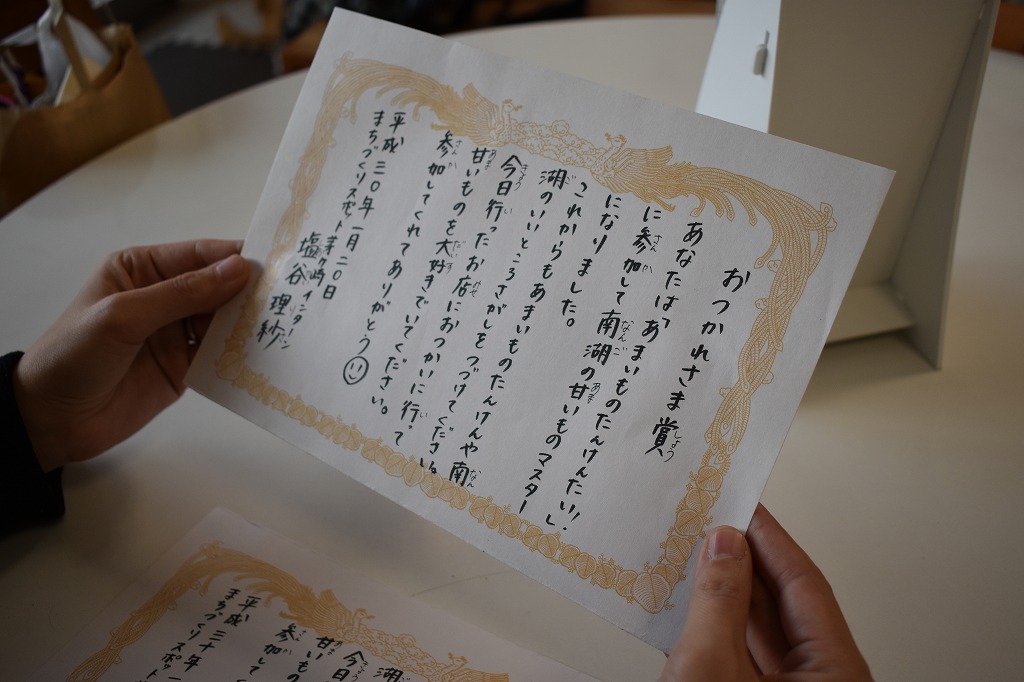 おつかれさま賞
あなたは「あまいものたんけんたい!」
に参加して南湖の甘いものマスター
になりました。
これからもあまいものたんけんや南
湖のいいところさがしをつづけてください。
今日行ったお店におつかいに行って
甘いものを大好きでいてください。
参加してくれてありがとう
平成三〇年一月二〇日
まちづくりスポット茅ヶ崎インターン
塩谷理紗
湖の
今日
甘いもの
参加して
平成三十年一
まちづくりスポット